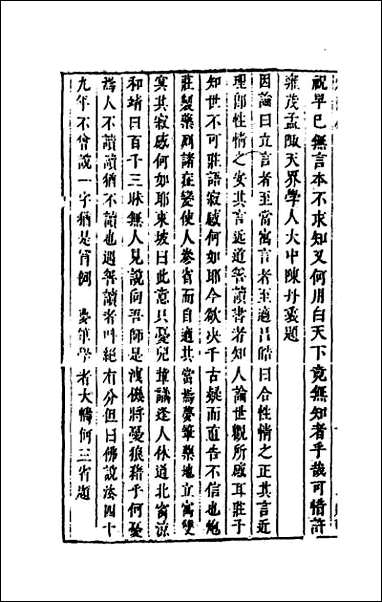 祝早已無言本不求知又何用白天下竟無知者乎哉可惜許
雍茂孟陬天界學人大中陳丹衷題
因論曰立言者至當寓言者至適呂皓曰合性情之正其言近
理卽性情之安其言近道善讀書者知人論世觀所感耳莊子
知世不可莊語寂感何如耶今欲決千古疑而直告不信也炮
莊製藥列諸症變使人參省而自適其當焉夢筆藥地立寓雙
冥其寂感何如耶東坡曰此意只憂兒童議逢人休道北窗涼
和靖曰百千三昧無人見說向吾師是洩機將憂狼藉乎何憂
爲人不讀讀猶不讀也遇善讀者叫絕有分但曰佛說法四十
九年不曾說一字猶是肖例 夢筆學者大疇何三省題